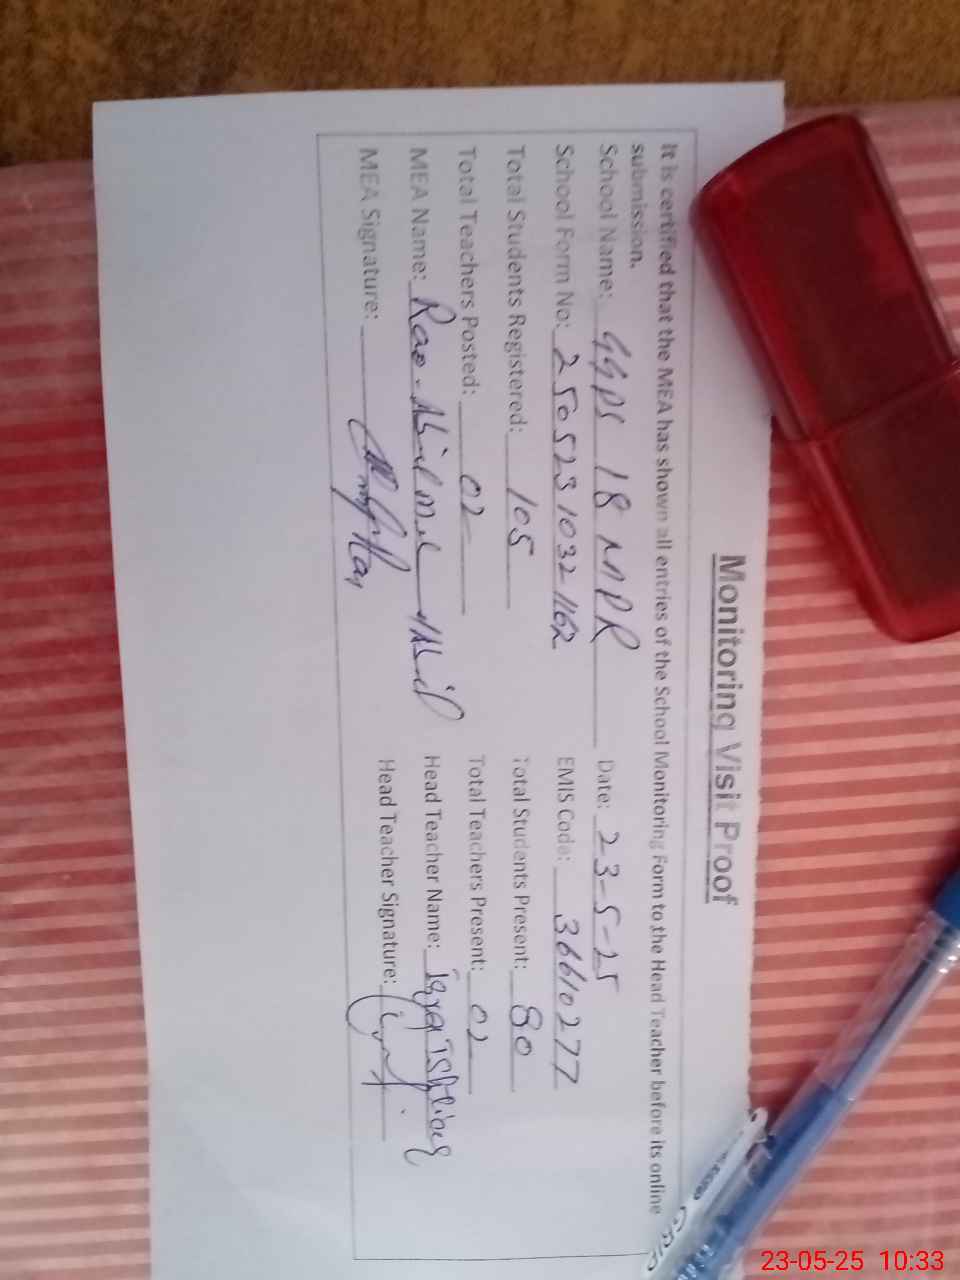 Monitoring Visit Proof
It is certified that the MEA has shown all entries of the School Monitoring Form to the Head Teacher before its online
submission.
School Name: GGPS 18 MPR Date: 23-5-25
School Form No: 250523 1032 1162 EMIS Code: 36610277
Total Students Registered: 105 Total Students Present: 80
Total Teachers Posted: 02 Total Teachers Present: 02
MEA Name: Rao Head Teacher Name: Iqra
MEA Signature: Head Teacher Signature:
23-05-25 10:33